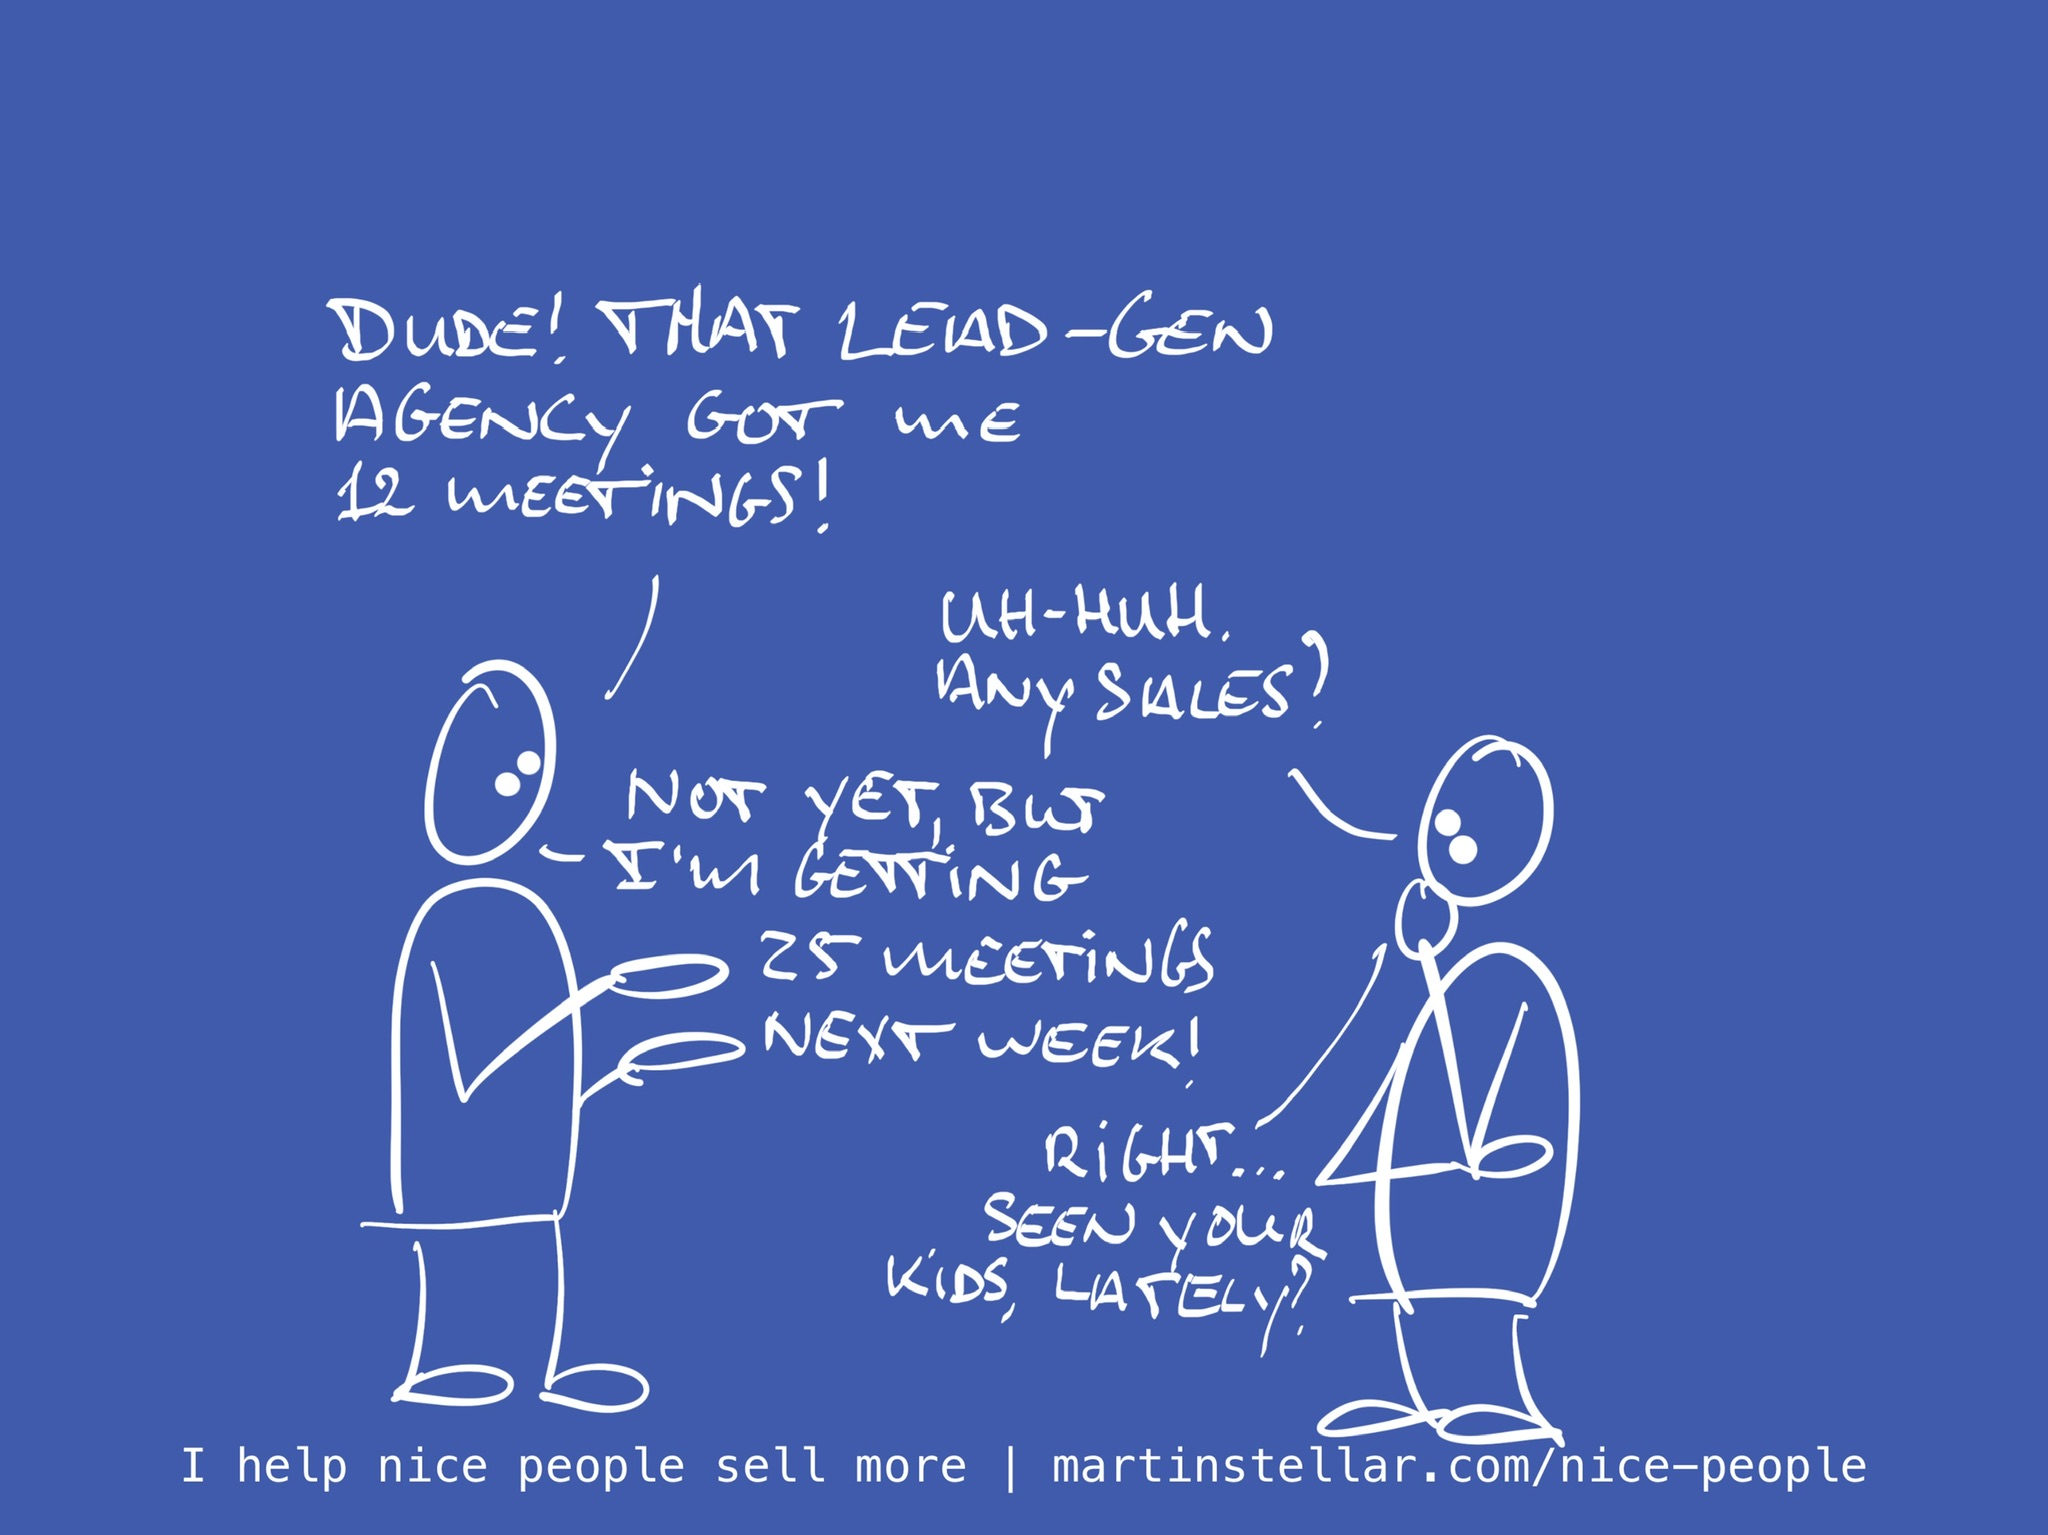 DUDE! THAT LEAD-GEN
AGENCY GOT ME
12 MEETINGS!
UH-HUH.
ANY SALES?
NOT YET, BUT
I'M GETTING
25 MEETINGS
NEXT WEEK!
RIGHT...
SEEN YOUR
KIDS, LATELY?
I help nice people sell more | martinstellar.com/nice-people